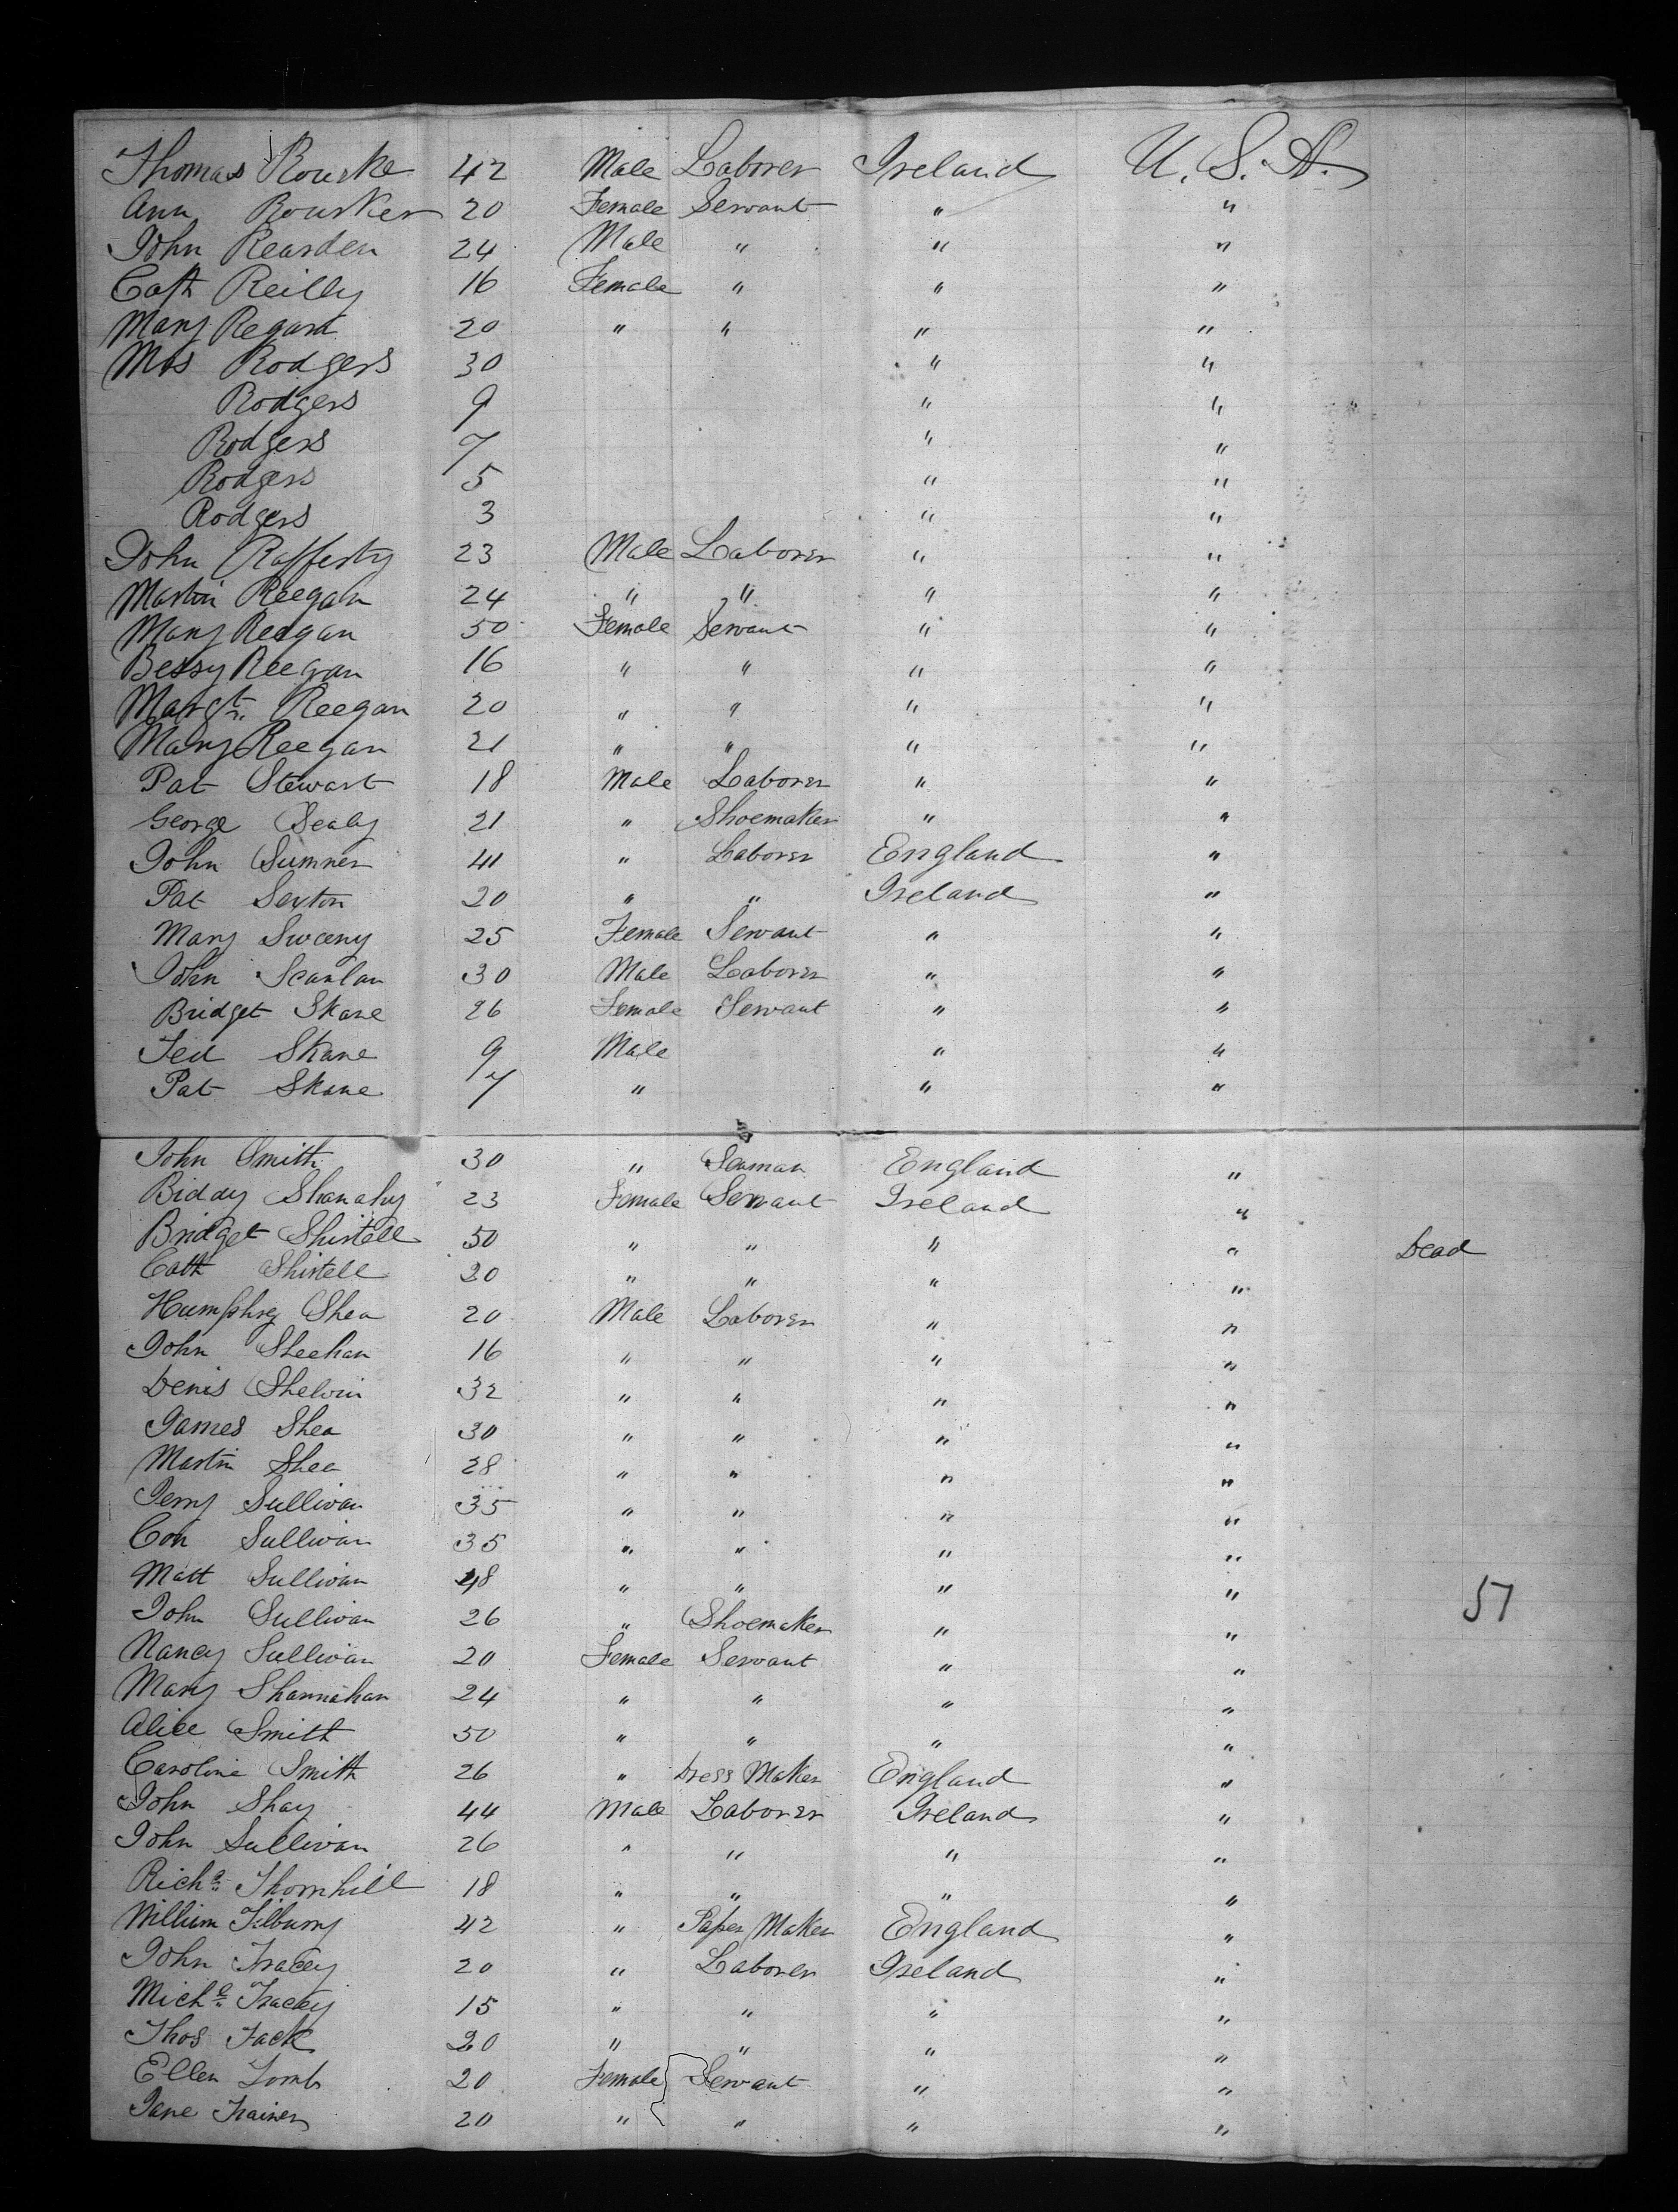 Thomas Rourke 42 Male Laborer Ireland U.S.A.
Ann Rourke 20 Female Servant " "
John Rearden 24 Male " " "
Cath Reilly 16 Female " " "
Mary Regan 20 " " " "
Mrs Rodgers 30 " "
Rodgers 9 " "
Rodgers 7 " "
Rodgers 5 " "
Rodgers 3 " "
John Rafferty 23 Male Laborer " "
Martin Reegan 24 " " " "
Mary Reegan 50 Female Servant " "
Bessy Reegan 16 " " " "
Margt. Reegan 20 " " " "
Mary Reegan 21 " " " "
Pat Stewart 18 Male Laborer " "
George Sealy 21 " Shoemaker " "
John Sumner 41 " Laborer England "
Pat Sexton 20 " " Ireland "
Mary Sweeny 25 Female Servant " "
John Scanlan 30 Male Laborer " "
Bridget Skane 26 Female Servant " "
Ted Skane 9 Male " "
Pat Skane 7 " " "
John Smith 30 " Seaman England "
Biddy Shanahy 23 Female Servant Ireland "
Bridget Shirtell 50 " " " " Dead
Cath Shirtell 20 " " " "
Humphrey Shea 20 Male Laborer " "
John Sheehan 16 " " " "
Denis Shelvin 32 " " " "
James Shea 30 " " " "
Martin Shea 28 " " " "
Jerry Sullivan 35 " " " "
Con Sullivan 35 " " " "
Matt Sullivan 48 " " " "
John Sullivan 26 " Shoemaker " " 51
Nancy Sullivan 20 Female Servant " "
Mary Shannahan 24 " " " "
Alice Smith 50 " " " "
Caroline Smith 26 " Dress Maker England "
John Shay 44 Male Laborer Ireland "
John Sullivan 26 " " " "
Richd. Thornhill 18 " " " "
William Tilburry 42 " Paper Maker England "
John Tracey 20 " Laborer Ireland "
Michl. Tracey 15 " " " "
Thos Tack 20 " " " "
Ellen Tomb 20 Female Servant " "
Jane Trainer 20 " " " "